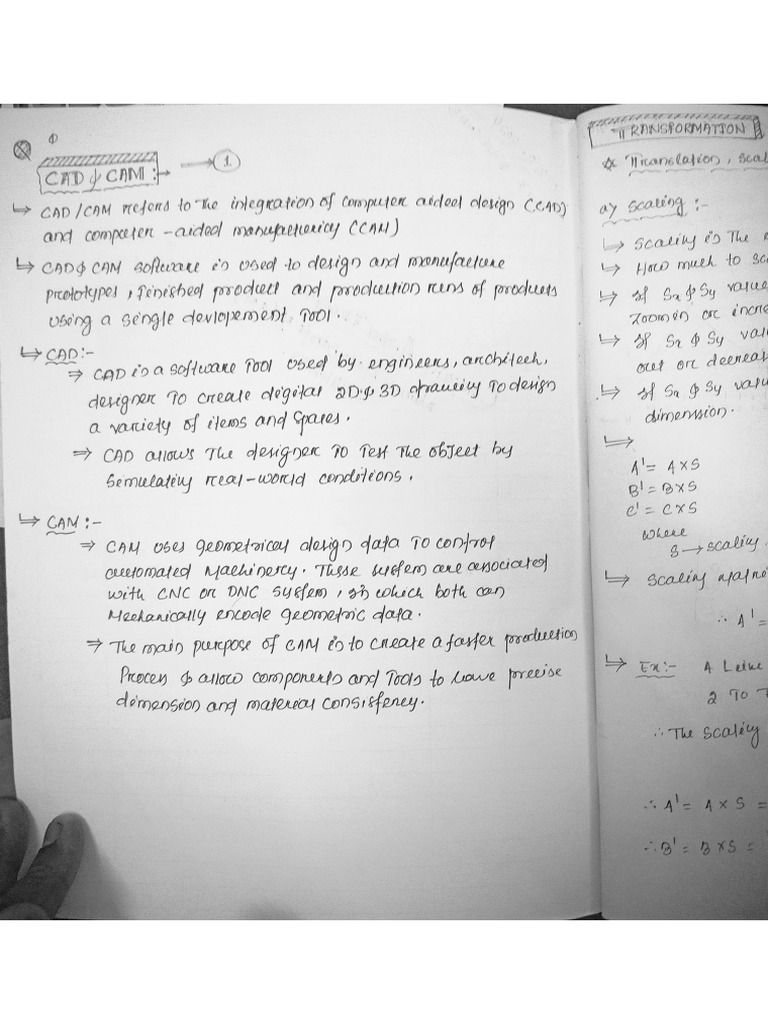 CAD & CAM :→ → 1
↳ CAD/CAM refers to the integration of computer aided design (CAD)
and computer-aided manufacturing (CAM)
↳ CAD & CAM software is used to design and manufacture
prototypes, finished product and production runs of products
using a single devlopement Tool.
↳ CAD:-
⇒ CAD is a software Tool used by engineers, architech,
designer To create digital 2D & 3D drawing To design
a variety of items and spares.
⇒ CAD allows The designer To Test The object by
Simulating real-world conditions.
↳ CAM :-
⇒ CAM uses geometrical design data To control
automated Machinery. These system are associated
with CNC or DNC system, in which both can
Mechanically encode geometric data.
⇒ The main purpose of CAM is to create a faster production
Process & allow components and Tools to have precise
dimension and material consistency.
TRANSFORMATION
☆ Translation, Scal
a) Scaling :-
↳ Scaling is The
↳ How much to sc
↳ If Sx & Sy value
Zoom in or incre
↳ If Sx & Sy val
out or decreas
↳ If Sx & Sy valu
dimenssion.
↳
A' = A × S
B' = B × S
C' = C × S
where
S → scaling
↳ Scaling Matri
∴ A' =
↳ Ex:- A Line
2 To T
∴ The scaling
∴ A' = A × S =
∴ B' = B × S =